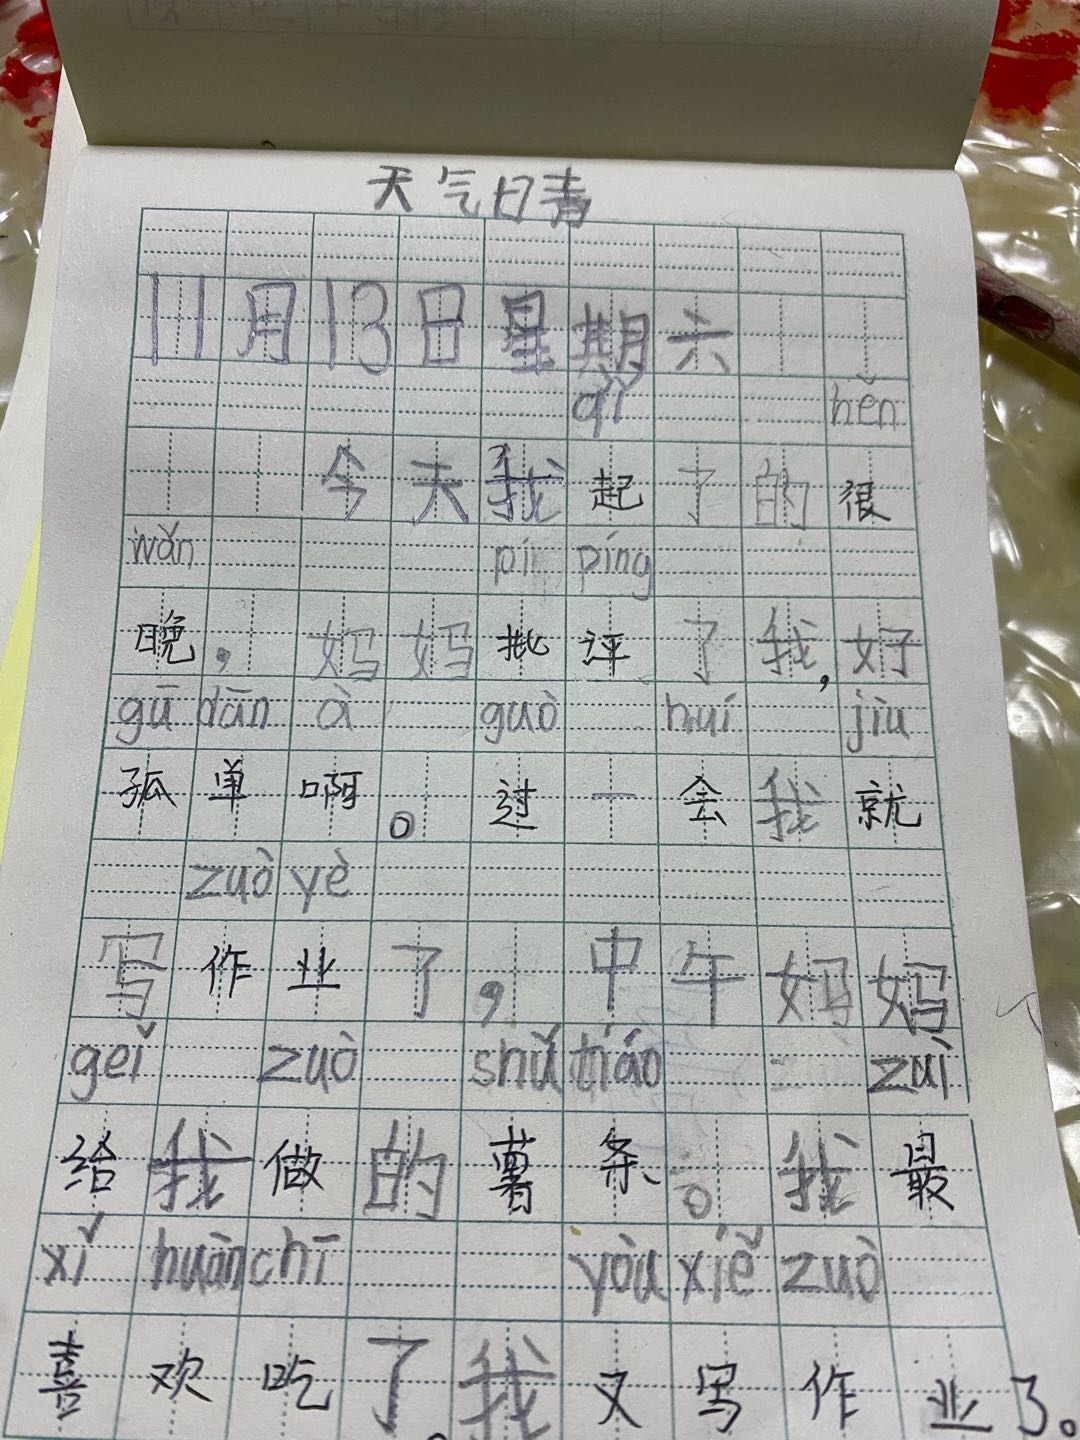 天气日青
11月13日星期六
qǐ hěn
今天我起了的很
wǎn pī píng
晚，妈妈批评了我，好
gū dān à guò huí jiù
孤单啊。过一会我就
zuò yè
写作业了，中午妈妈
geǐ zuò shǔ tiáo zuì
给我做的薯条。我最
xǐ huàn chī yòu xiě zuò
喜欢吃了。我又写作业了。